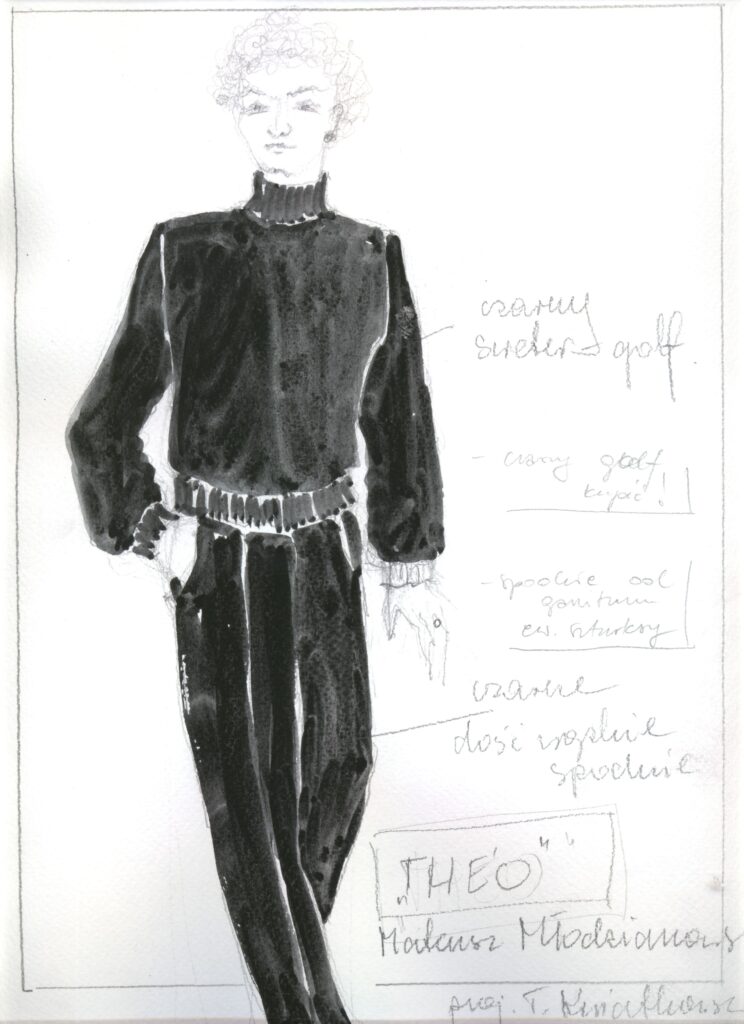 czarny
sweter golf
- czarny golf
kupić!
- spodnie od
garnituru
ew. sztruksy
czarne
dość wąskie
spodnie
„THÉO"
Mateusz Młodzianows
proj. T. Kwiatkows